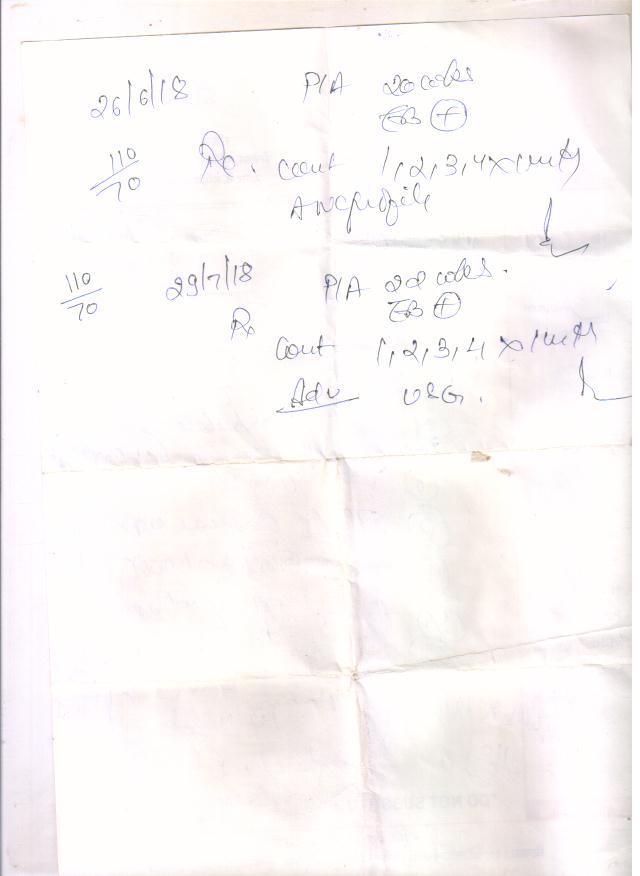 26/6/18 P/A 20 wks
FHS (+)
110/70 Rx. Cont 1,2,3,4 x 1 mth
ANC profile
110/70 29/7/18 P/A 22 wks.
(+)
Rx
Cont 1,2,3,4 x 1 mth
Adv USG.
"DO NOT SUBS